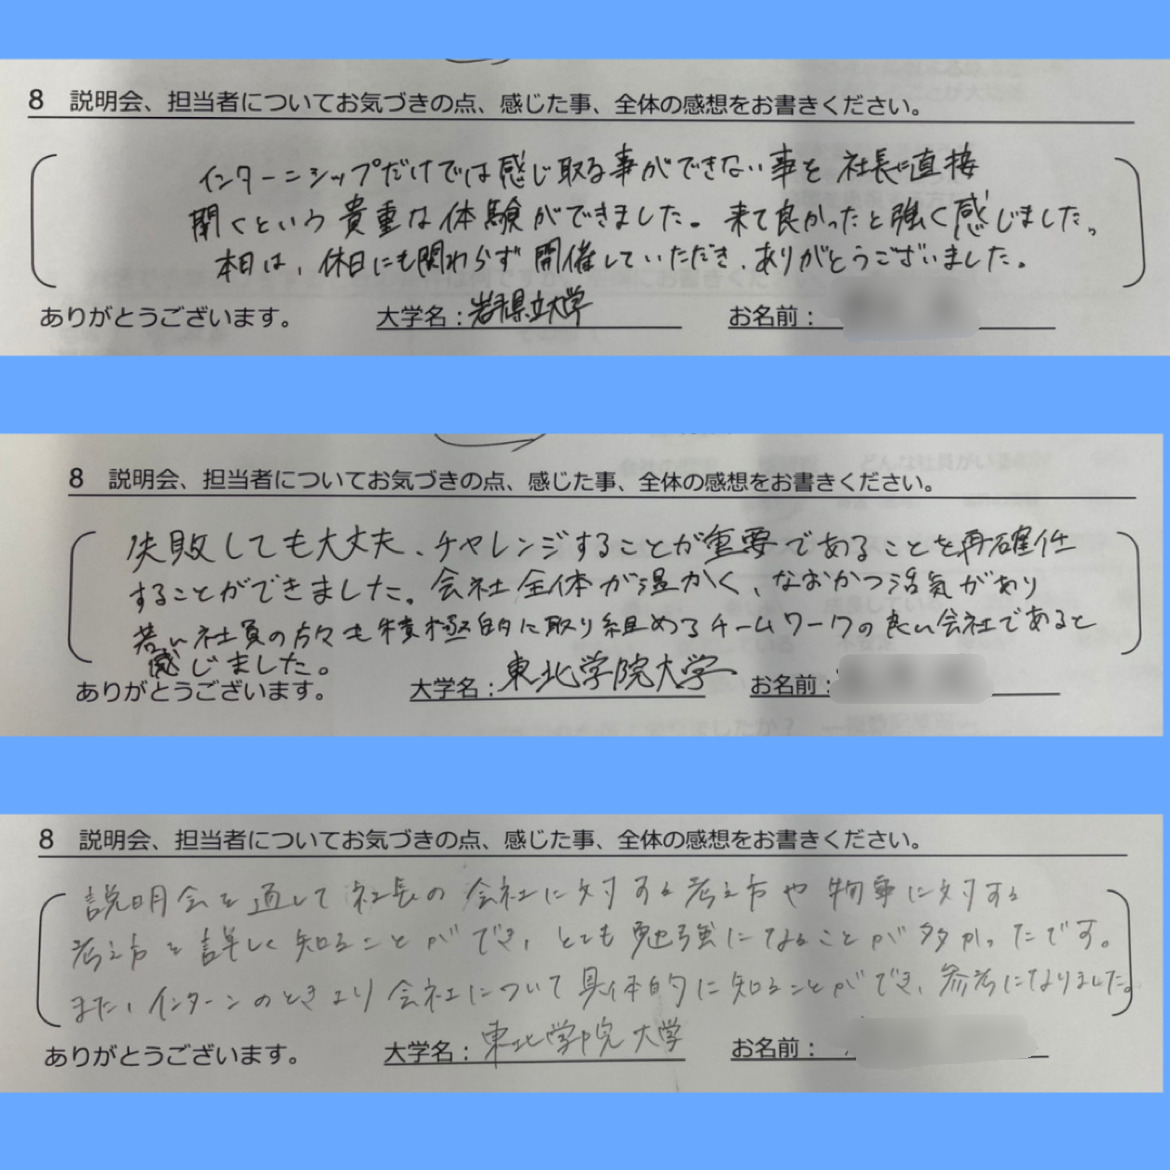 8 説明会、担当者についてお気づきの点、感じた事、全体の感想をお書きください。
インターンシップだけでは感じ取る事ができない事を 社長に直接
聞くという貴重な体験ができました。来て良かったと強く感じました。
本日は、休日にも関わらず開催していただき、ありがとうございました。
ありがとうございます。 大学名：岩手県立大学 お名前：
8 説明会、担当者についてお気づきの点、感じた事、全体の感想をお書きください。
失敗しても大丈夫、チャレンジすることが重要であることを再確任
することができました。会社全体が温かく、なおかつ活気があり
若い社員の方々も積極的に取り組めるチームワークの良い会社であると
感じました。
ありがとうございます。 大学名：東北学院大学 お名前：
8 説明会、担当者についてお気づきの点、感じた事、全体の感想をお書きください。
説明会を通して社長の会社に対する考え方や物事に対する
考え方を詳しく知ることができ、とても勉強になることが多かったです。
また、インターンのときより会社について具体的に知ることができ、参考になりました。
ありがとうございます。 大学名：東北学院大学 お名前：